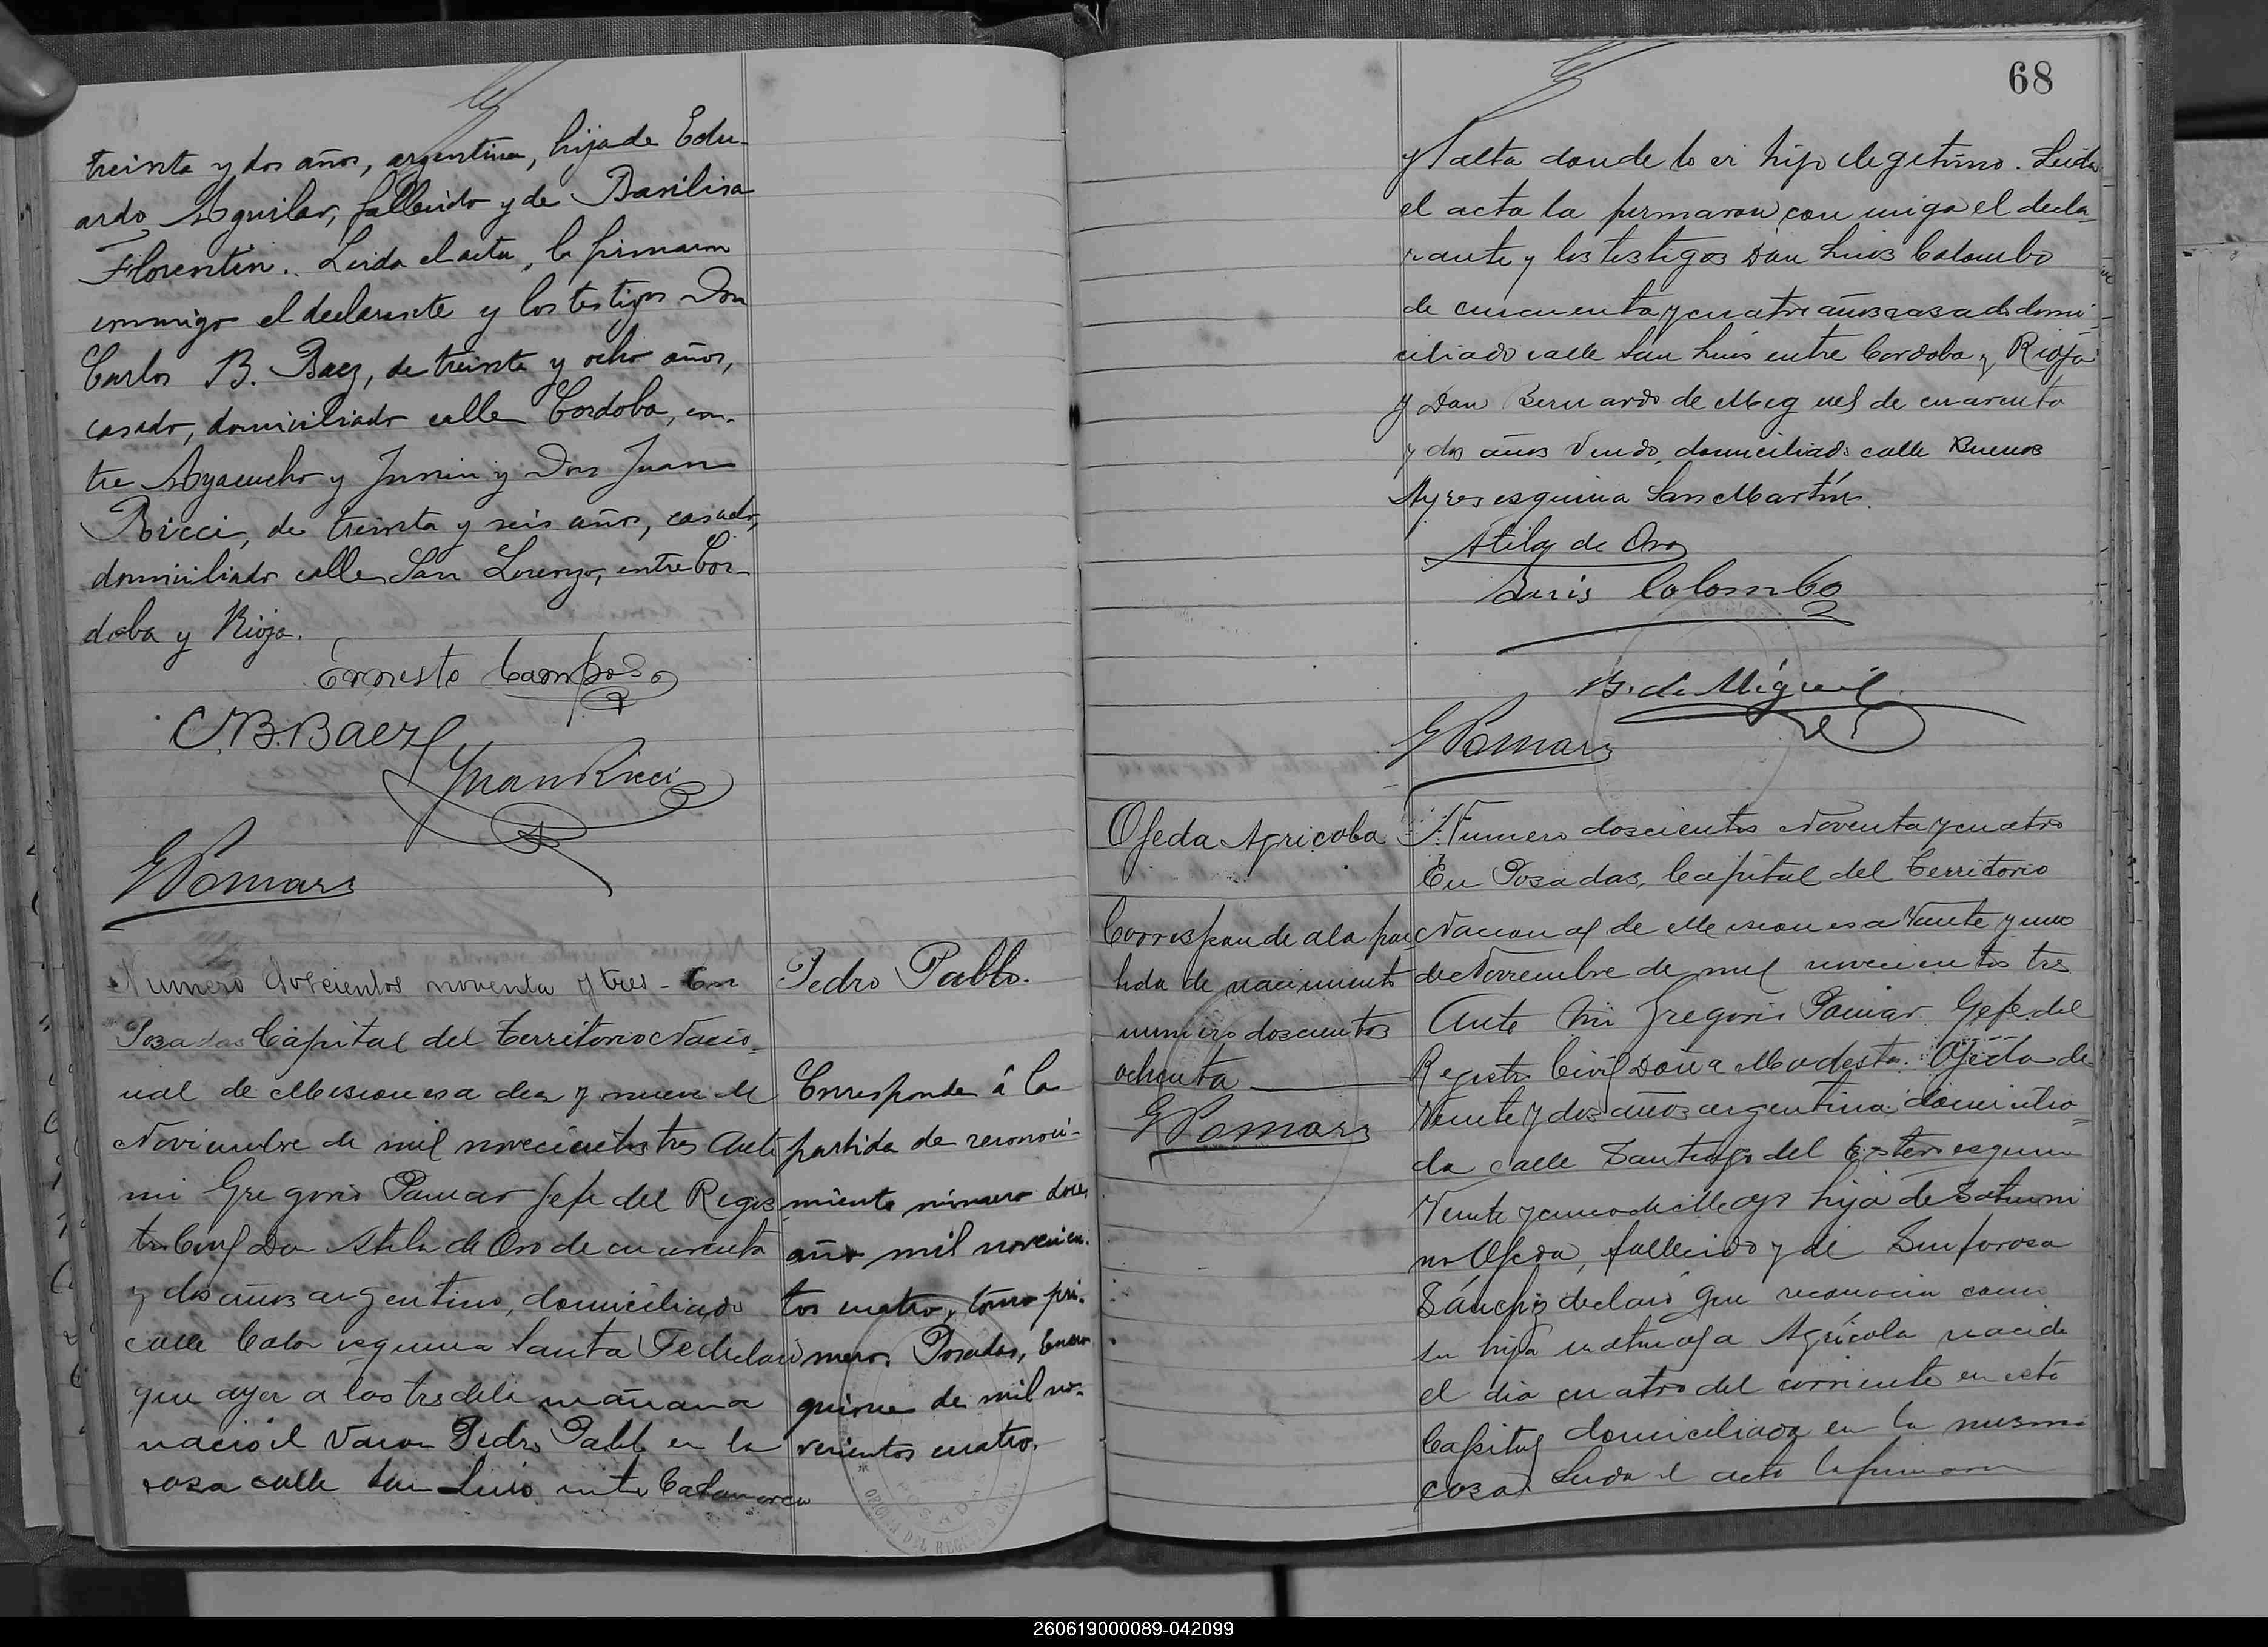 treinta y dos años, argentina, hija de Edu-
ardo Aguilar, fallecido y de Basilisa
Florentin. Leida el acta, la firmaron
conmigo el declarante y los testigos Don
Carlos B. Baez, de treinta y ocho años,
casado, domiciliado calle Cordoba, en-
tre Ayacucho y Junin y Don Juan
Ricci, de treinta y seis años, casado,
domiciliado calle San Lorenzo, entre Cor-
doba y Rioja.
Ernesto Campos
C.B. Baez
Juan Ricci
G Pomar
Número doscientos noventa y tres - En
Posadas Capital del Territorio Nacio-
nal de Misiones a diez y nueve de
Noviembre de mil novecientos tres Ante
mi Gregorio Pomar Jefe del Regis
tro Civil Don Atila de Oro de cuarenta
y dos años argentino, domiciliado
calle Colon esquina Santa Fe declaró
que ayer a las tres de la mañana
nació el varon Pedro Pablo en la
casa calle San Luis entre Catamarca
Pedro Pablo.
Corresponde á la
partida de reconoci-
miento número doce,
año mil novecien-
tos cuatro, tomo pri-
mero. Posadas, Enero
quince de mil no-
vecientos cuatro.
68
y Salta donde lo es hijo ilegitimo. Leida
el acta la firmaron con migo el decla
rante y los testigos Don Luis Colombo
de cincuenta y cuatro años casado domi-
ciliado calle San Luis entre Cordoba y Rioja
y Don Bernardo de Miguel de cuarenta
y dos años viudo, domiciliado calle Buenos
Ayres esquina San Martín.
Atila de Oro
Luis Colombo
B. de Miguel
G Pomar
Ojeda Agricola
Corresponde a la par
tida de nacimiento
numero doscientos
ochenta
G Pomar
Numero doscientos noventa y cuatro
En Posadas, Capital del Territorio
Nacional de Misiones a veinte y uno
de Noviembre de mil novecientos tres
Ante mi Gregorio Pomar Gefe del
Registro Civil Doña Modesta Ojeda de
veinte y dos años argentina domicilia-
da calle Santiago del Estero esquina
Veinte y cinco de Mayo hija de Saturni
no Ojeda, fallecido y de Sinforosa
Sánchez declaró que reconocia como
su hija natural a Agrícola nacida
el dia cuatro del corriente en esta
Capital domiciliada en la misma
casa. Leida el acta la firmaron